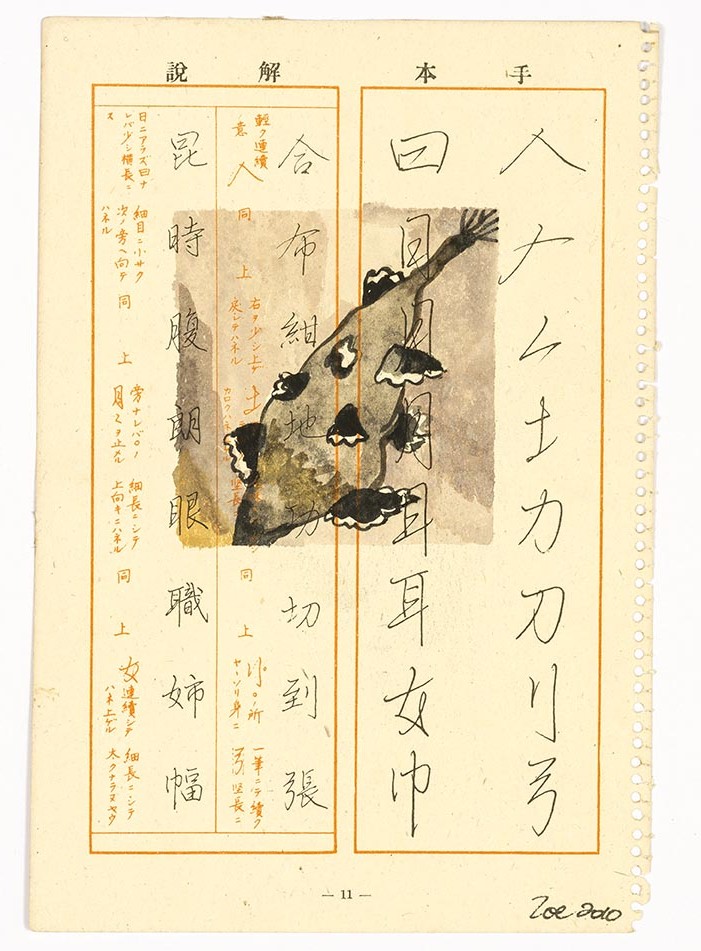 手本
人ナム土力刀刂弓
曰日月月目耳女巾
解說
合布紺地功切到張
輕ク連續
意
人
同上
右ヲ少シ上ゲ
戻シテハネル
土
同上
ノ所
ヤヽソリ身ニ
一筆ニテ續ク
弓 竪長ニ
昆時腹朗眼職姉幅
日ニアラズ曰ナ
レバ少シ横長ニ
ス
細目ニ小サク
次ノ旁へ向テ
ハネル
同上
旁ナレバ
月 ヲ止メル
細長ニシテ
上向キニハネル
同上
女連續シテ
ハネ上ゲル
細長ニシテ
太クナラヌヤウ
— 11 —
Zoe 2010